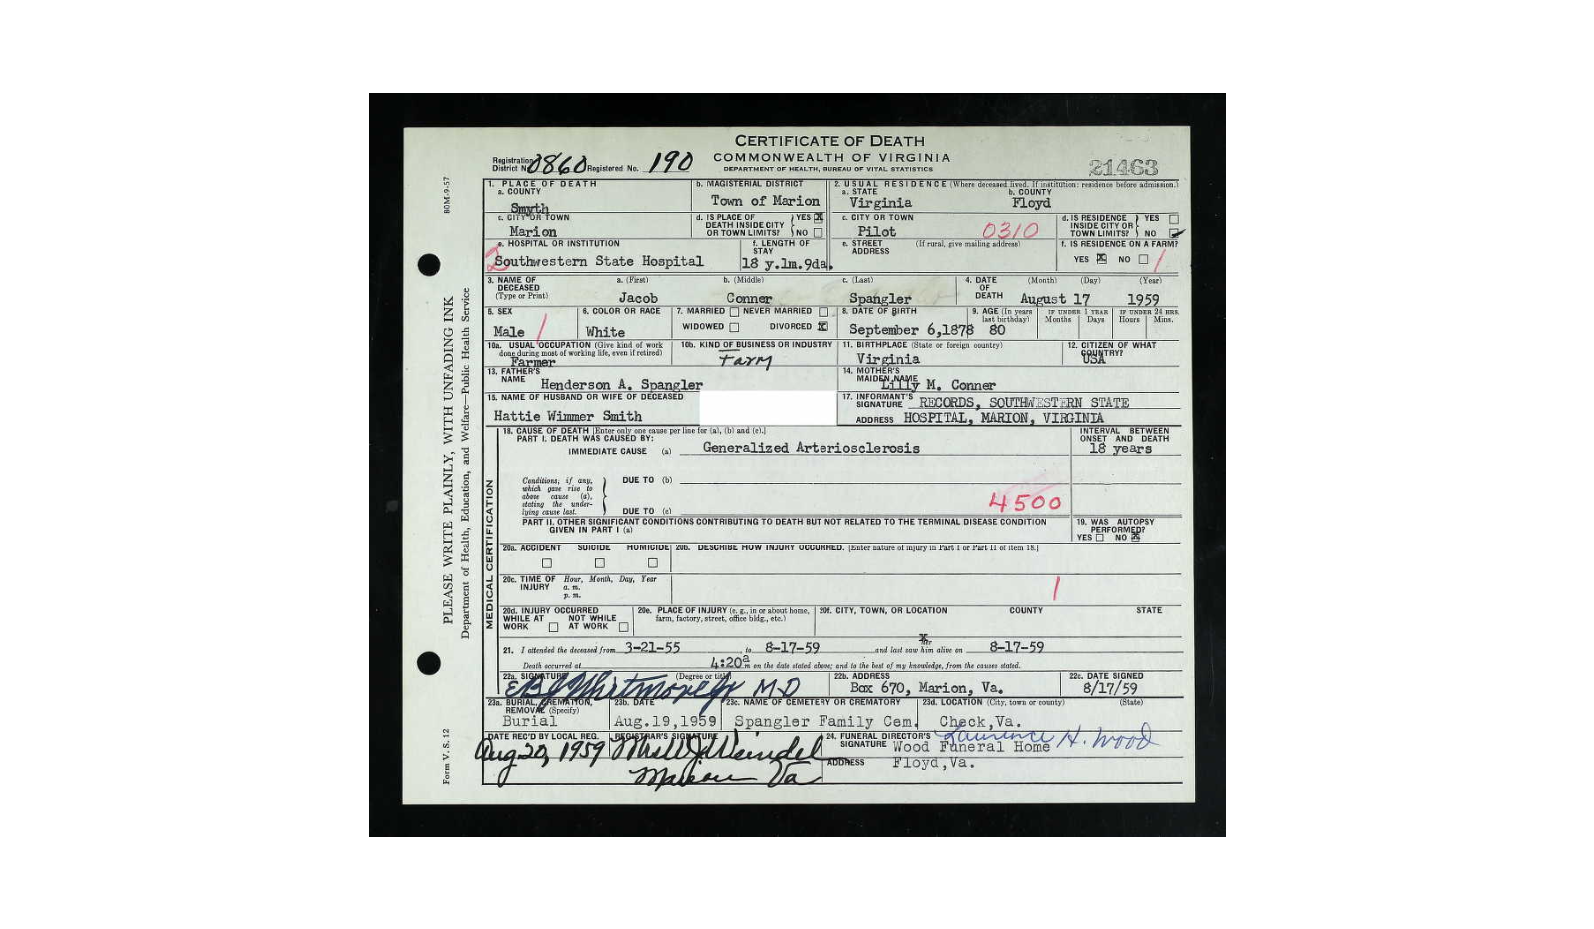 CERTIFICATE OF DEATH
COMMONWEALTH OF VIRGINIA
DEPARTMENT OF HEALTH, BUREAU OF VITAL STATISTICS
Registration District No. 0860 Registered No. 190
21463
1. PLACE OF DEATH
a. COUNTY
Smyth
b. MAGISTERIAL DISTRICT
Town of Marion
2. USUAL RESIDENCE (Where deceased lived. If institution: residence before admission.)
a. STATE
Virginia
b. COUNTY
Floyd
c. CITY OR TOWN
Marion
d. IS PLACE OF DEATH INSIDE CITY OR TOWN LIMITS? YES X NO
c. CITY OR TOWN
Pilot
0310
d. IS RESIDENCE INSIDE CITY OR TOWN LIMITS? YES NO
2
e. HOSPITAL OR INSTITUTION
Southwestern State Hospital
f. LENGTH OF STAY
18 y.1m.9da.
e. STREET ADDRESS (If rural, give mailing address)
f. IS RESIDENCE ON A FARM?
YES X NO 1
3. NAME OF DECEASED (Type or Print)
a. (First)
Jacob
b. (Middle)
Conner
c. (Last)
Spangler
4. DATE OF DEATH (Month) (Day) (Year)
August 17 1959
5. SEX
Male 1
6. COLOR OR RACE
White
7. MARRIED NEVER MARRIED
WIDOWED DIVORCED X
8. DATE OF BIRTH
September 6,1878
9. AGE (In years last birthday)
80
IF UNDER 1 YEAR Months Days
IF UNDER 24 HRS. Hours Mins.
10a. USUAL OCCUPATION (Give kind of work done during most of working life, even if retired)
Farmer
10b. KIND OF BUSINESS OR INDUSTRY
Farm
11. BIRTHPLACE (State or foreign country)
Virginia
12. CITIZEN OF WHAT COUNTRY?
USA
13. FATHER'S NAME
Henderson A. Spangler
14. MOTHER'S MAIDEN NAME
Lilly M. Conner
15. NAME OF HUSBAND OR WIFE OF DECEASED
Hattie Wimmer Smith
17. INFORMANT'S SIGNATURE RECORDS, SOUTHWESTERN STATE
ADDRESS HOSPITAL, MARION, VIRGINIA
MEDICAL CERTIFICATION
18. CAUSE OF DEATH [Enter only one cause per line for (a), (b) and (c).]
PART I. DEATH WAS CAUSED BY:
IMMEDIATE CAUSE (a) Generalized Arteriosclerosis
INTERVAL BETWEEN ONSET AND DEATH
18 years
Conditions, if any, which gave rise to above cause (a), stating the underlying cause last.
DUE TO (b)
DUE TO (c)
4500
PART II. OTHER SIGNIFICANT CONDITIONS CONTRIBUTING TO DEATH BUT NOT RELATED TO THE TERMINAL DISEASE CONDITION GIVEN IN PART I (a)
19. WAS AUTOPSY PERFORMED?
YES NO X
20a. ACCIDENT SUICIDE HOMICIDE
20b. DESCRIBE HOW INJURY OCCURRED. [Enter nature of injury in Part I or Part II of item 18.]
20c. TIME OF INJURY Hour, Month, Day, Year
a. m.
p. m.
1
20d. INJURY OCCURRED
WHILE AT WORK NOT WHILE AT WORK
20e. PLACE OF INJURY (e. g., in or about home, farm, factory, street, office bldg., etc.)
20f. CITY, TOWN, OR LOCATION COUNTY STATE
21. I attended the deceased from 3-21-55 to 8-17-59 and last saw him alive on 8-17-59
Death occurred at 4:20a m on the date stated above; and to the best of my knowledge, from the causes stated.
22a. SIGNATURE (Degree or title)
E B J Whitmore Jr M D
22b. ADDRESS
Box 670, Marion, Va.
22c. DATE SIGNED
8/17/59
23a. BURIAL, CREMATION, REMOVAL (Specify)
Burial
23b. DATE
Aug.19,1959
23c. NAME OF CEMETERY OR CREMATORY
Spangler Family Cem.
23d. LOCATION (City, town or county) (State)
Check,Va.
DATE REC'D BY LOCAL REG.
Aug 20, 1959
REGISTRAR'S SIGNATURE
Marion Va
24. FUNERAL DIRECTOR'S SIGNATURE Laurence H. Wood
Wood Funeral Home
ADDRESS Floyd,Va.
80M-9-57
PLEASE WRITE PLAINLY, WITH UNFADING INK
Department of Health, Education, and Welfare—Public Health Service
Form V. S. 12